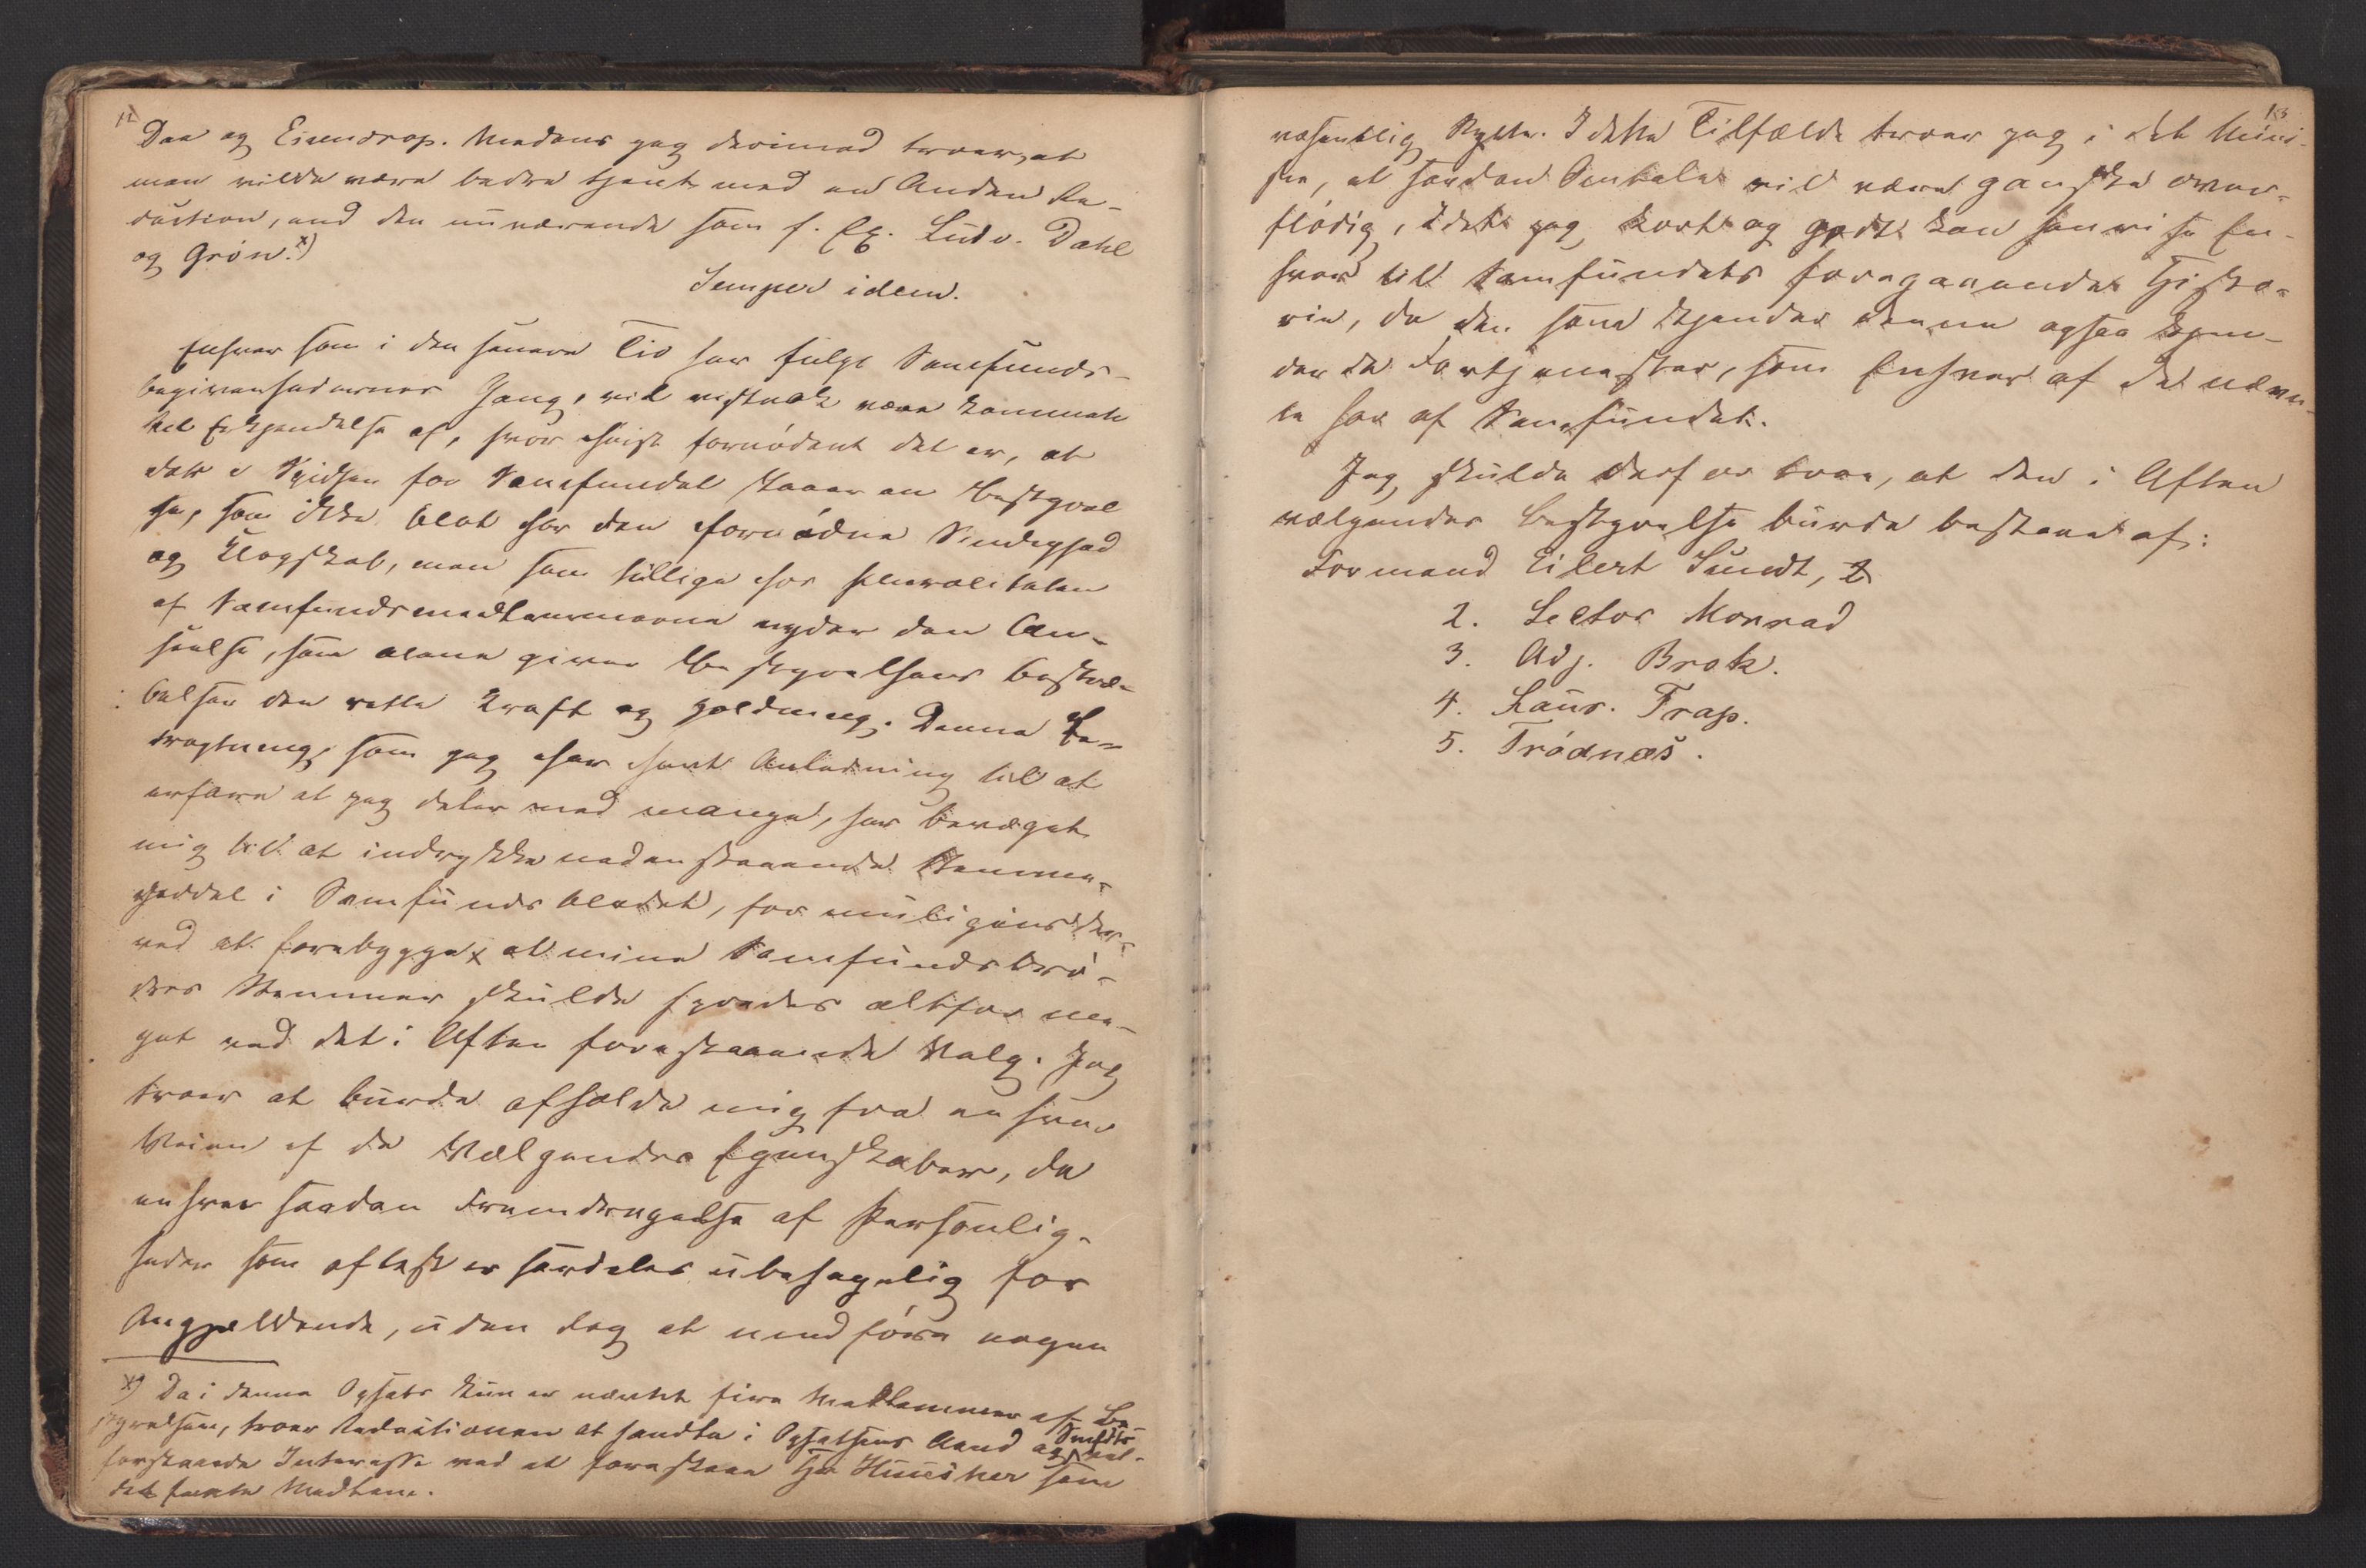 12
Daa og Eisendrop. Medens jeg derimod troer, at
man vilde være bedre tjent med en Anden Re-
daction, end den nuværende som f. Ex. Ludv. Dahl
og Grøn.x)
Semper idem.
Enhver som i den senere Tid har fulgt Samfunds-
begivenhedernes Gang, vil vistnok være kommen
til Erkjendelse af, hvor høist fornødent det er, at
der i Spidsen for Samfundet staaer en Bestyrel
se, som ikke blot har den fornødne Sindighed
og Klogskab, men som tillige hos Pluraliteten
af Samfundsmedlemmerne nyder den An-
seelse, som alene giver Bestyrelsens Bestræ-
belser den rette Kraft og Holdning. Denne Be-
tragtning, som jeg har havt Anledning til at
erfare at jeg deler med mange, har bevæget
mig til at indrykke nedenstaaende Stemme-
seddel i Samfundsbladet, for muligens der-
ved at forebygge, at mine Samfundsbrø-
dres Stemmer skulde spredes altfor me-
get ved det i Aften forestaaende Valg. Jeg
troer at burde afholde mig fra enhver
Veien af de Vælgendes Egenskaber, da
enhver saadan Fremdragelse af Personlig-
heder som oftest er særdeles ubehagelig for
Angjældende, uden dog at medføre nogen
x) Da i denne Opsats kun er nævnt fire Medlemmer af Be-
styrelsen, troer Redactionen at handle i Opsatsens Aand og Smfdts vel-
forstaaede Interesse ved at foreslaae Hr. som
det femte Medlem.
13
væsentlig Nytte. I dette Tilfælde troer jeg i det Mind-
ste, at saadan Omtale vil være ganske over-
flødig, idet jeg kort og godt kan henvise En-
hver til Samfundets foregaaende Histo-
rie, da den som kjender denne ogsaa kjen-
der de Fortjenester, som Enhver af de nævn-
te har af Samfundet.
Jeg skulde derfor troe, at den i Aften
vælgendes Bestyrelse burde bestaae af:
Formand Eilert Sundt,
2. Lector Monrad
3. Adj. Brok.
4. Laur. Trap.
5. Trødnæs.